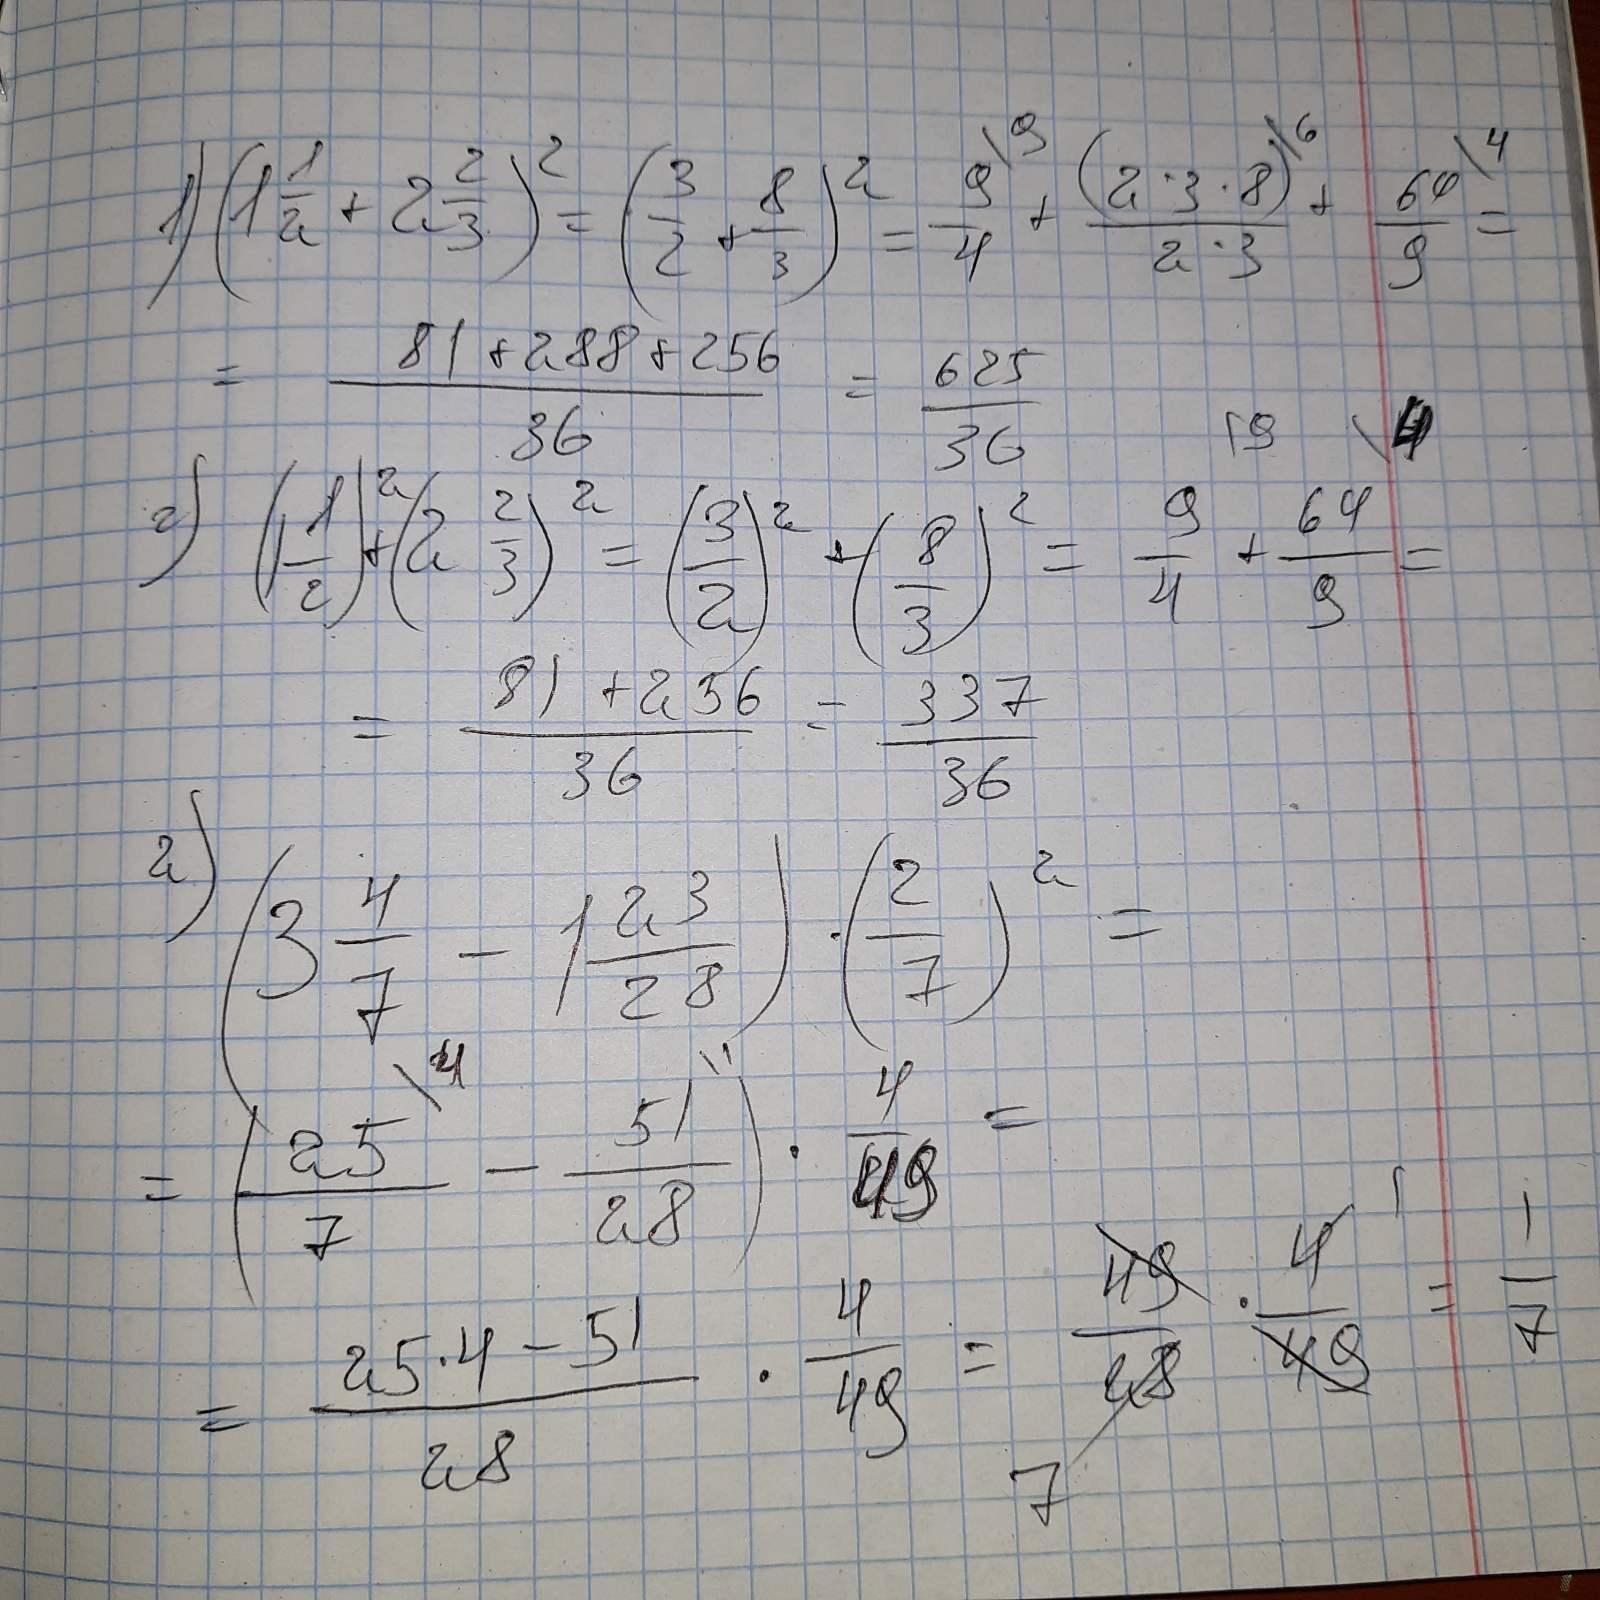 1) (1 1/2 + 2 2/3)² = (3/2 + 8/3)² = 9/4 \9 + (2·3·8)/(2·3) \6 + 64/9 \4 =
= (81+288+256)/36 = 625/36
г) (1 1/2)² + (2 2/3)² = (3/2)² + (8/3)² = 9/4 \9 + 64/9 \4 =
= (81+256)/36 = 337/36
2) (3 4/7 − 1 23/28) · (2/7)² =
= (25/7 \4 − 51/28 \1) · 4/49 =
= (25·4−51)/28 · 4/49 = 49/28 7 · 4/49 1 = 1/7